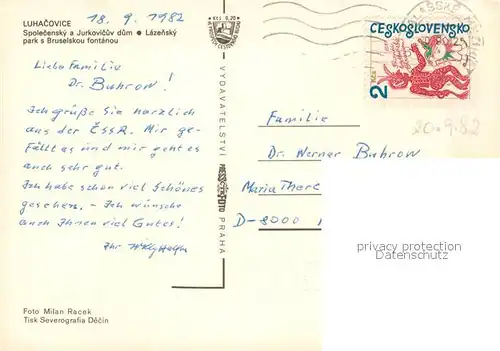 LUHAČOVICE
Společenský a Jurkovičův dům ● Lázeňský
park s Bruselskou fontánou
18. 9. 1982
Kčs 0,20
Liebe Familie
Dr. Buhrow!
Ich grüße Sie herzlich
aus der ČSSR. Mir ge-
fällt es und mir geht es
auch sehr gut.
Ich habe schon viel Schönes
gesehen. - Ich wünsche
auch Ihnen viel Gutes!
Ihr
Foto Milan Racek
Tisk Severografia Děčín
VYDAVATELSTVÍ
PRESSFOTO
PRAHA
ČESKOSLOVENSKO
2 Kčs
20.9.82
Familie
Dr. Werner Buhrow
Maria There
D-8000
privacy protection
Datenschutz